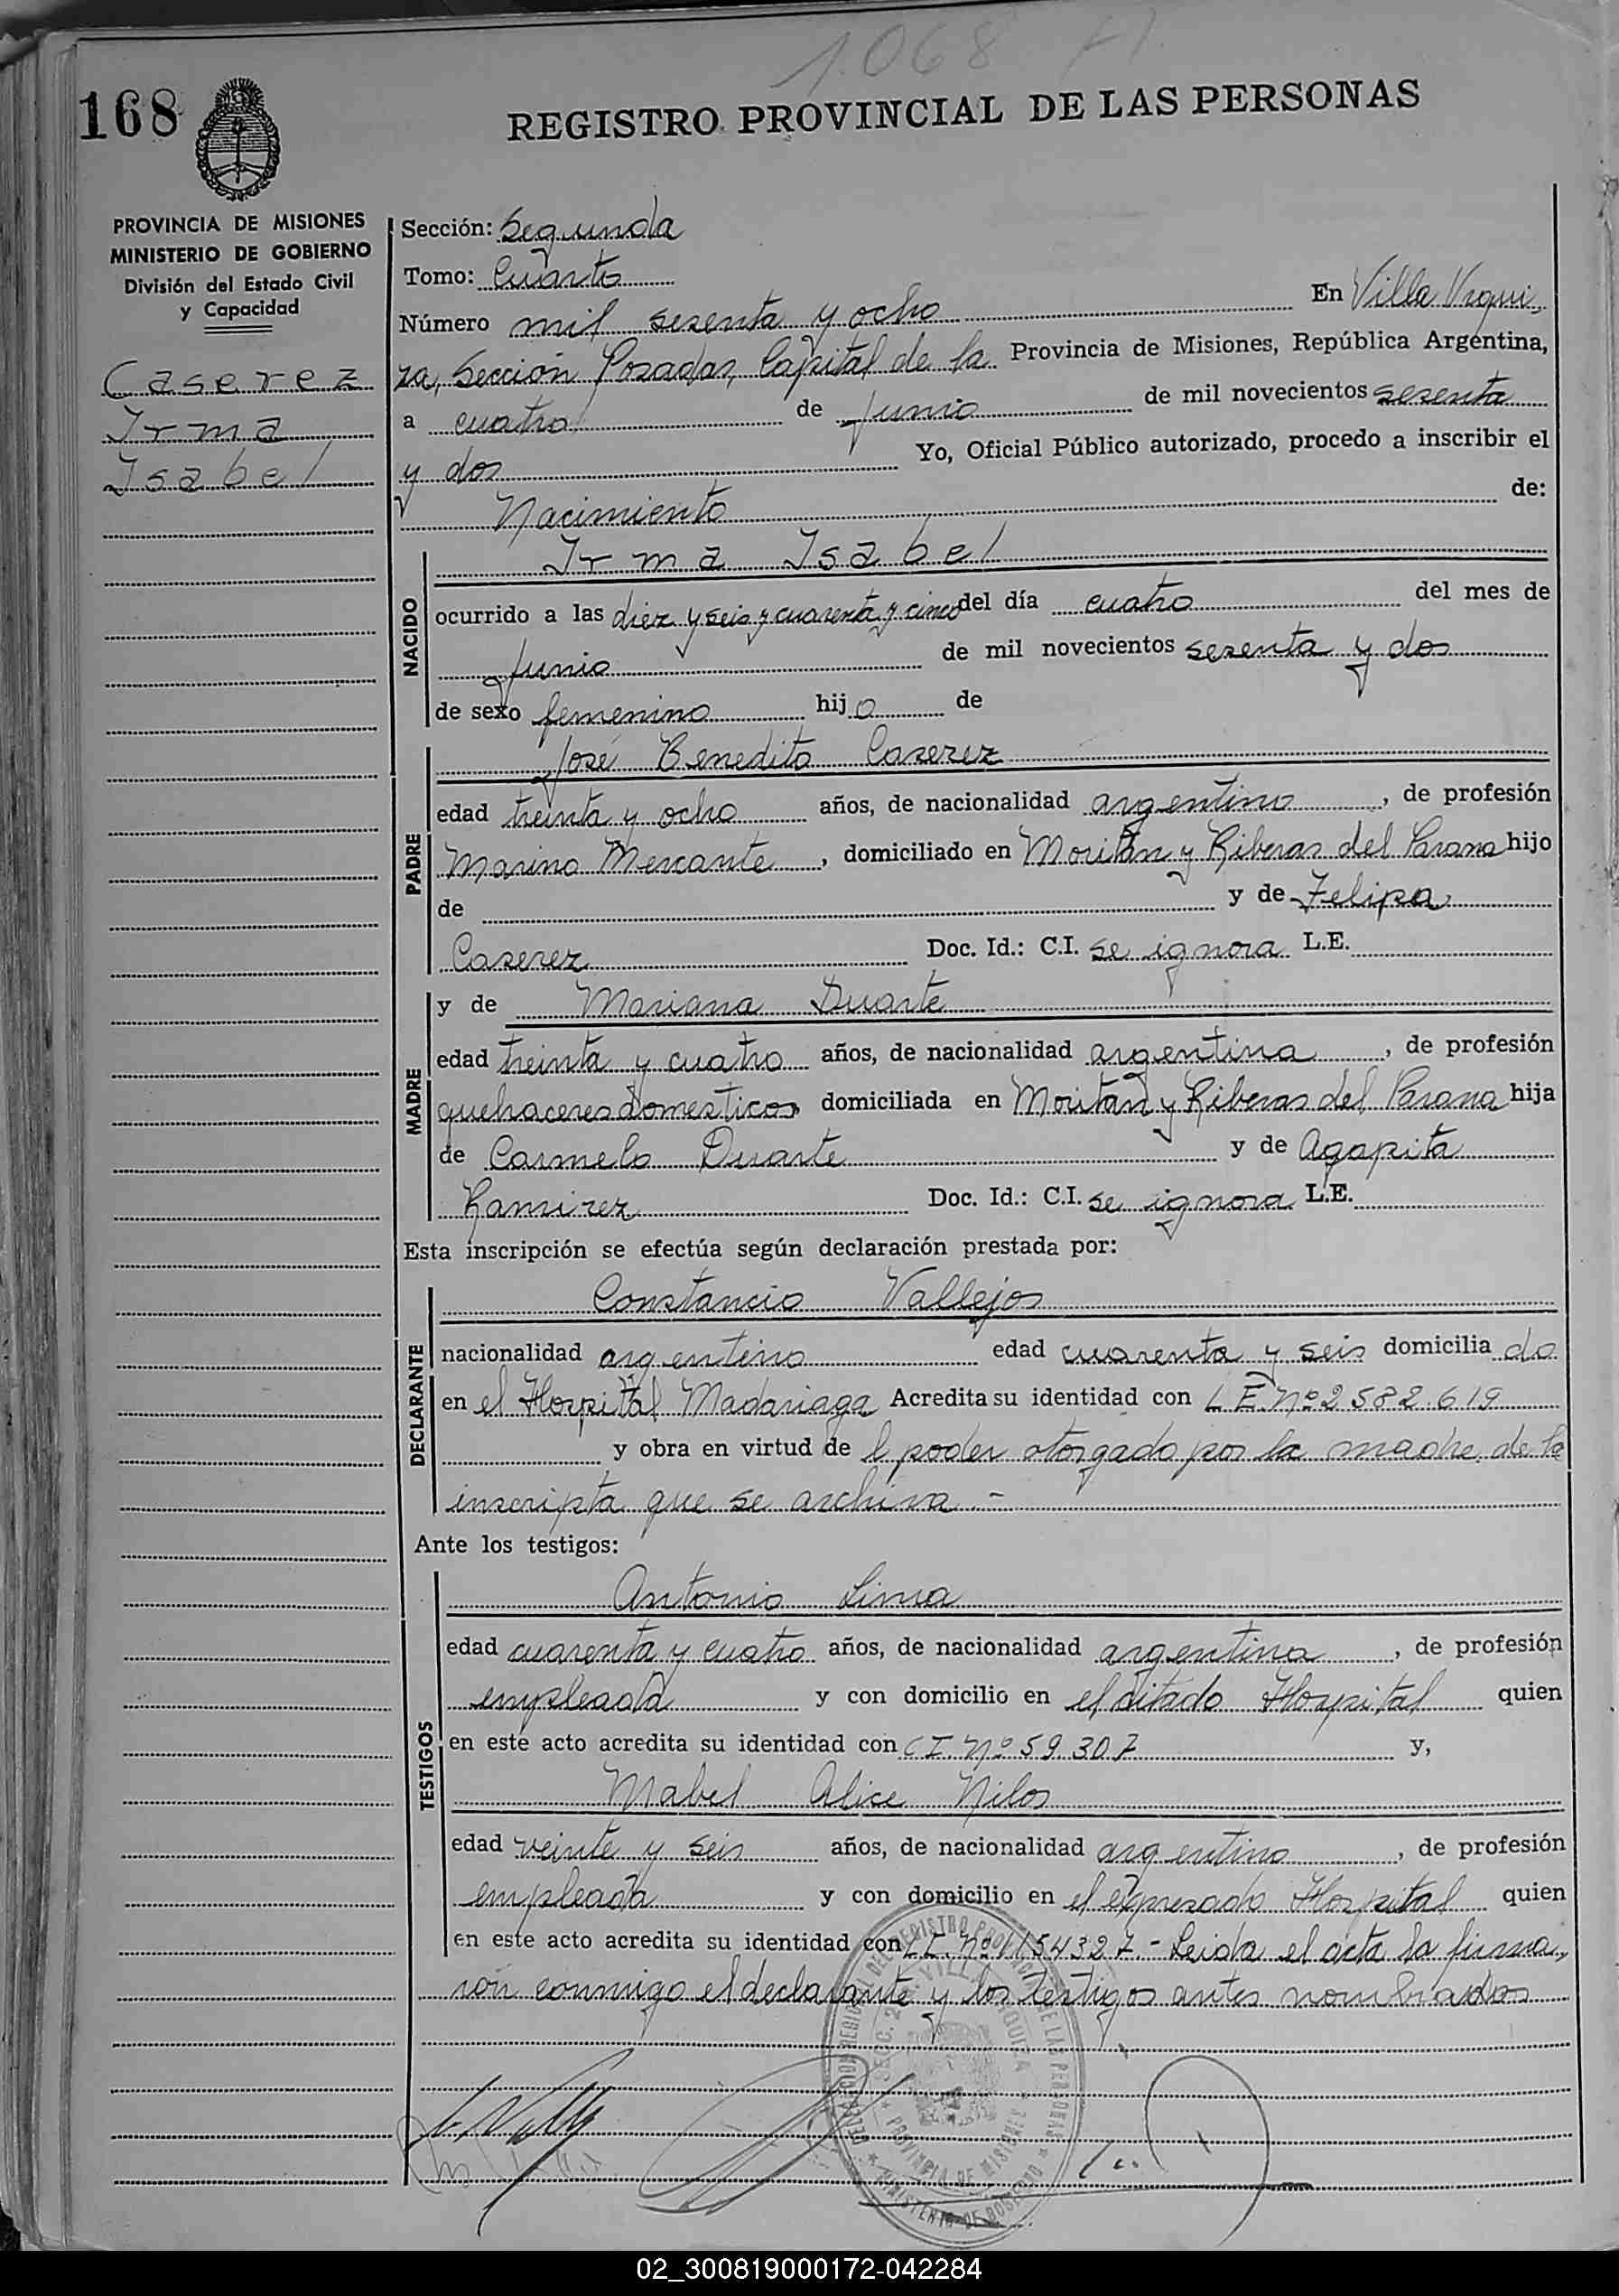 1068
168
REGISTRO PROVINCIAL DE LAS PERSONAS
PROVINCIA DE MISIONES
MINISTERIO DE GOBIERNO
División del Estado Civil
y Capacidad
Caserez
Irma
Isabel
Sección: Segunda
Tomo: Cuarto
Número mil sesenta y ocho En Villa Urqui,
za, Sección Posadas, Capital de la Provincia de Misiones, República Argentina,
a cuatro de junio de mil novecientos sesenta
y dos Yo, Oficial Público autorizado, procedo a inscribir el
Nacimiento de:
Irma Isabel
NACIDO
ocurrido a las diez y seis y cuarenta y cinco del día cuatro del mes de
junio de mil novecientos sesenta y dos
de sexo femenino hijo de
José Benedito Caserez
PADRE
edad treinta y ocho años, de nacionalidad argentino, de profesión
Marino Mercante, domiciliado en Moritán y Riberas del Parana hijo
de y de Felipa
Caserez Doc. Id.: C.I. se ignora L.E.
y de Mariana Duarte
MADRE
edad treinta y cuatro años, de nacionalidad argentina, de profesión
quehaceres domesticos domiciliada en Moritan y Riberas del Parana hija
de Carmelo Duarte y de Agapita
Ramirez Doc. Id.: C.I. se ignora L.E.
Esta inscripción se efectúa según declaración prestada por:
Constancio Vallejos
DECLARANTE
nacionalidad argentino edad cuarenta y seis domiciliado
en el Hospital Madariaga Acredita su identidad con L E. Nº 2 582.619
y obra en virtud de l poder otorgado por la madre de la
inscripta que se archiva.-
Ante los testigos:
Antonio Lima
TESTIGOS
edad cuarenta y cuatro años, de nacionalidad argentina, de profesión
empleada y con domicilio en el citado Hospital quien
en este acto acredita su identidad con C I. Nº 59.307 y,
Mabel Alice Nilos
edad veinte y seis años, de nacionalidad argentino, de profesión
empleada y con domicilio en el expresado Hospital quien
en este acto acredita su identidad con Nº 1154327.- Leida el acta la firma,
ron conmigo el declarante y los testigos antes nombrados
DELEGACION REGIONAL DEL REGISTRO PROVINCIAL DE LAS PERSONAS
SECC. 2ª VILLA URQUIZA
PROVINCIA DE MISIONES
MINISTERIO DE GOBIERNO
02_300819000172-042284